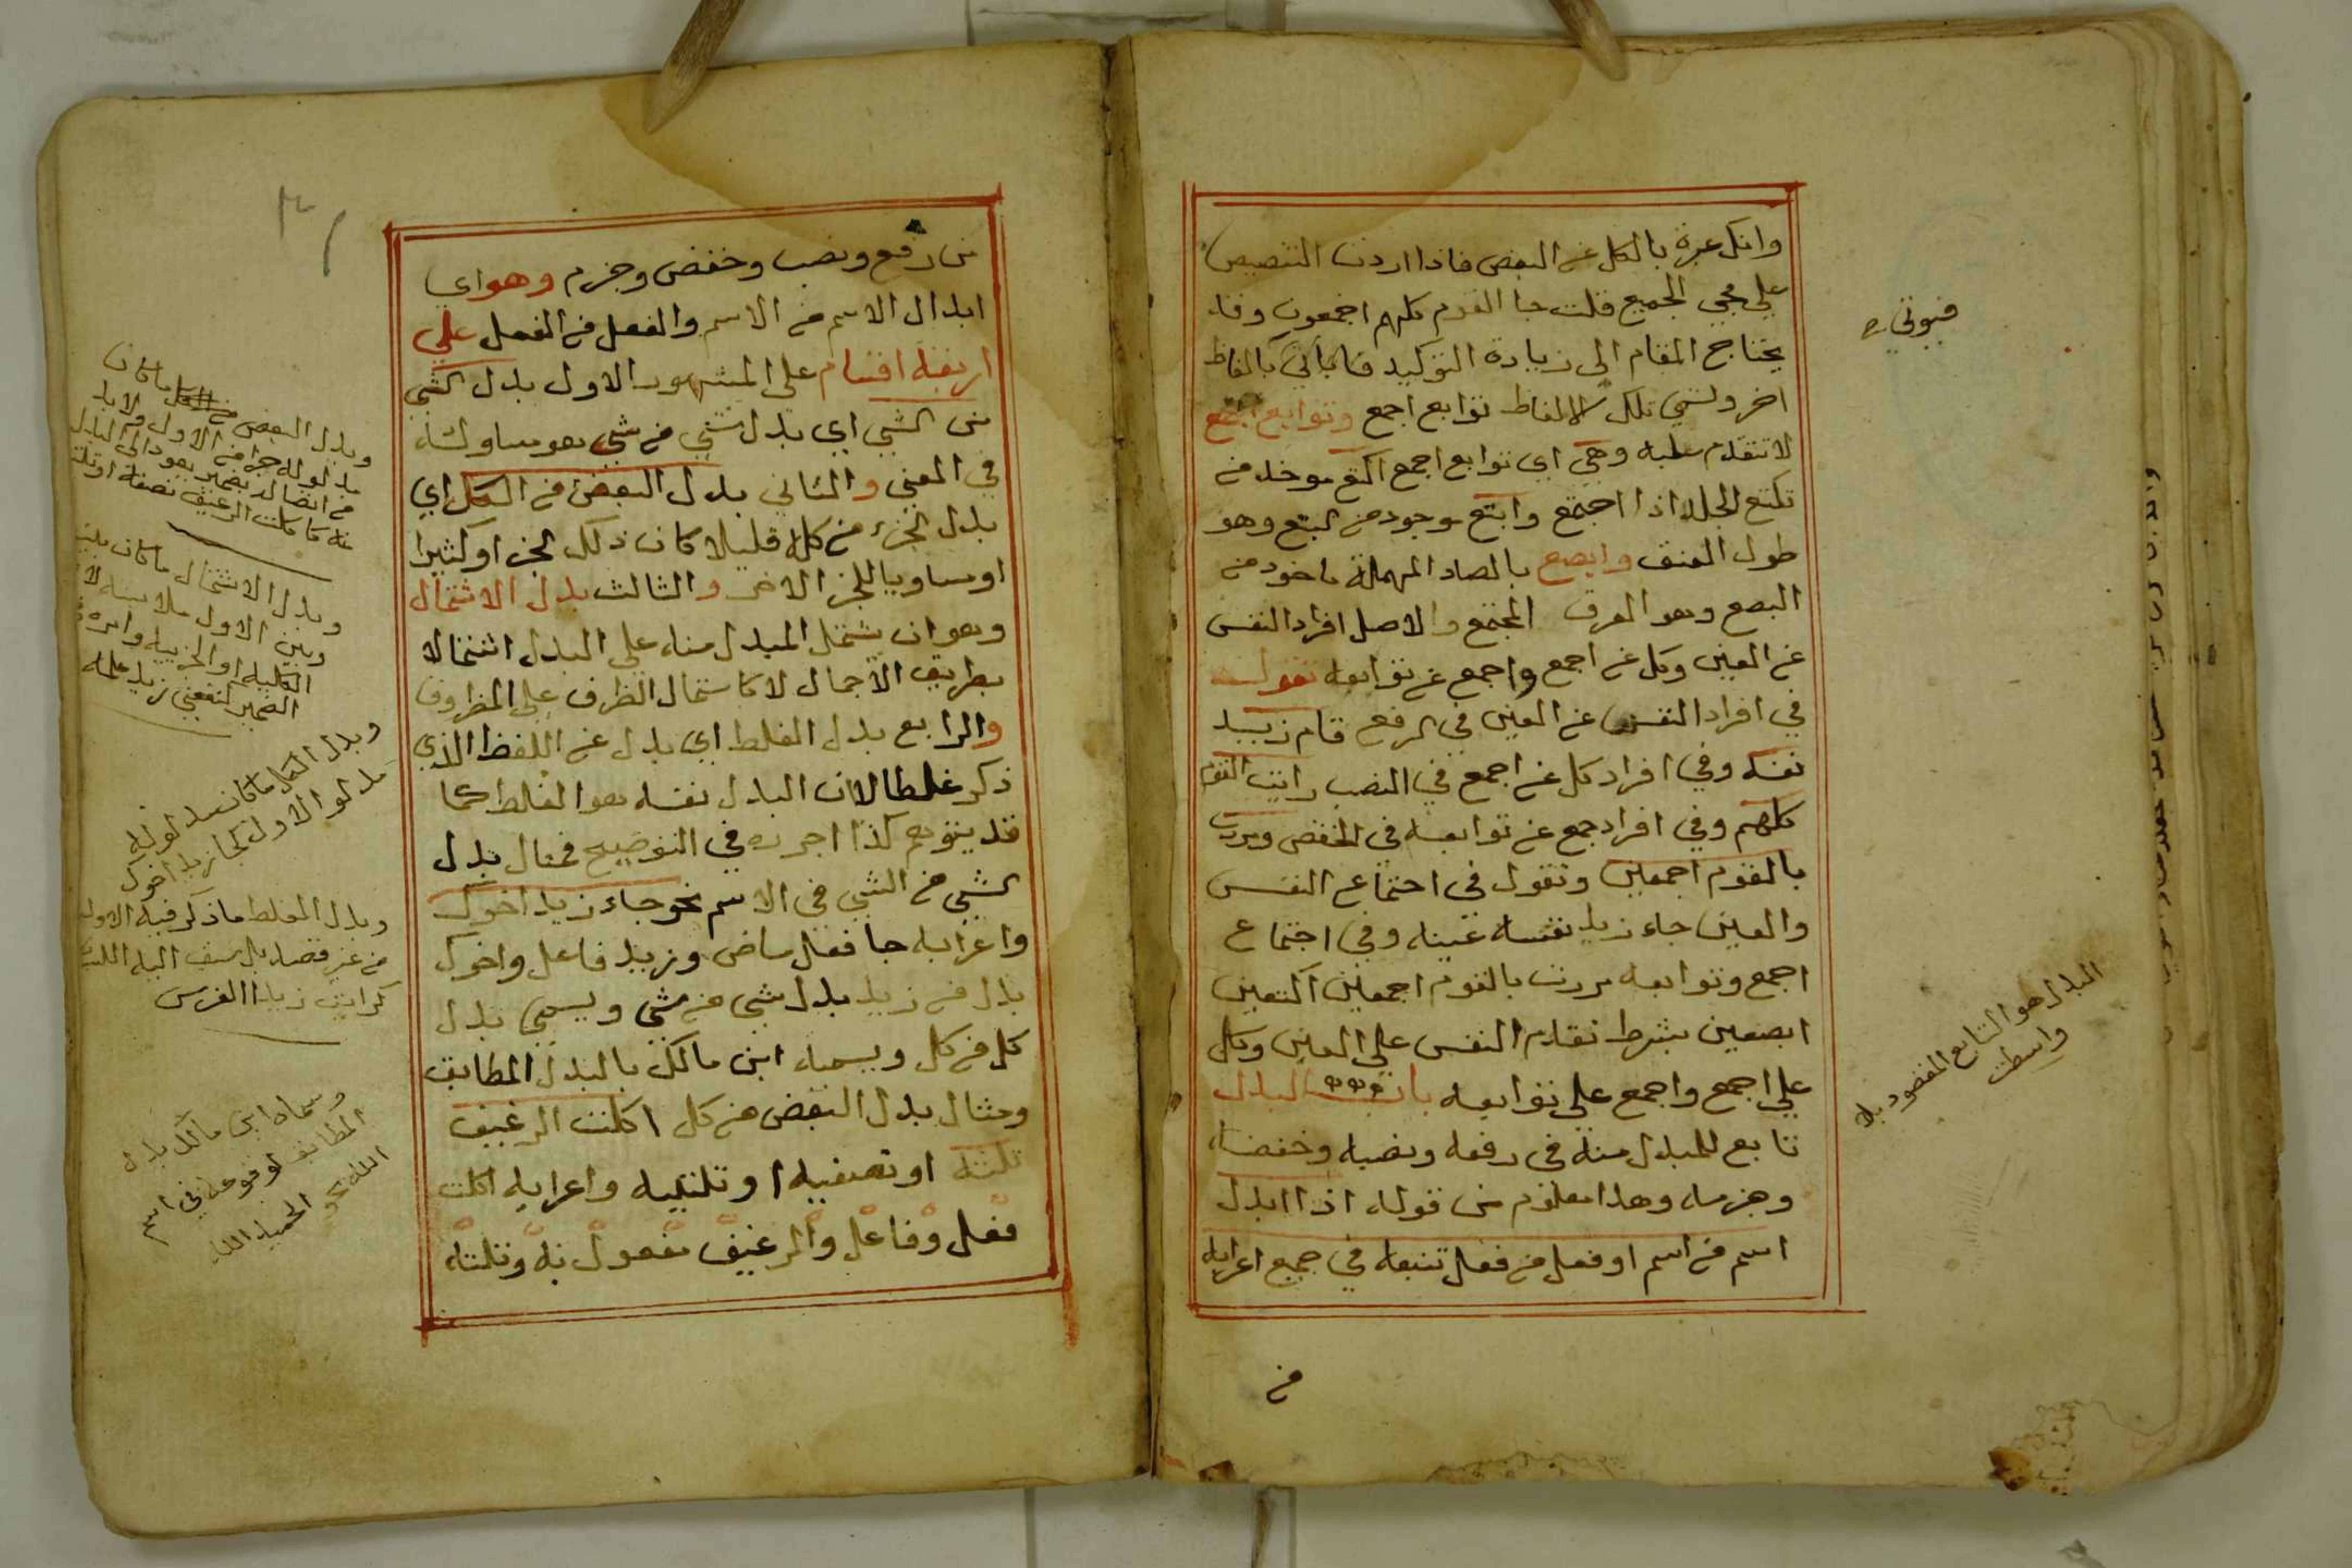 وانك عبرة بالكل عن البعض فاذا اردت التنصيص
على مجي الجميع قلت جا القوم كلهم اجمعون وقد
يحتاج المقام الى زيادة التوكيد بالفاظ
اخر وتسمي تلك الالفاظ توابع اجمع وتوابع اجمع
لا تتقدم عليه وهي اي توابع اجمع اكتع موخد من
تكتع الجلد اذا اجتمع وابتع موجود من البتع وهو
طول العنق وابصع بالصاد المهملة ماخود من
البصع وهو العرق المجتمع والاصل افراد النفس
عن العين وكل عن اجمع واجمع عن توابعه تقول
في افراد النفس عن العين في الرفع قام زيد
نفسه وفي افراد كل عن اجمع في النصب رايت القوم
كلهم وفي افراد جمع عن توابعه في الخفض ومررت
بالقوم اجمعين وتقول في اجتماع النفس
والعين جاء زيد نفسه عينه وفي اجتماع
اجمع وتوابعه مررت بالقوم اجمعين اكتعين
ابصعين بشرط تقدم النفس على العين وكل
على اجمع واجمع على توابعه باب البدل
تابع للمبدل منه في رفعه ونصبه وخفضه
وجزمه وهذا معلوم من قوله اذا ابدل
اسم من اسم او فعل من فعل تتبعه في جميع اعرابه
من
البدل هو التابع المقصود به
واسطت
من رفع ونصب وخفض وجزم وهو اي
ابدال الاسم من الاسم والفعل من الفعل على
اربعة اقسام على المشهور الاول بدل الشي
من الشي اي بدل شي من شي هو مساو له
في المعني والثاني بدل البعض من الكل اي
بدل الجزء من كله قليلا كان ذلك الجزء او كثيرا
او مساويا للجزء الاخر والثالث بدل الاشتمال
وهو ان يشتمل المبدل منه على البدل اشتمالا
بطريق الاجمال لا كاشتمال الظرف على المظروف
والرابع بدل الغلط اي بدل عن اللفظ الذي
ذكر غلطا لا ان البدل نفسه هو الغلط كما
قد يتوهم كذا اجره في التوضيح فمثال بدل
الشي من الشي في الاسم نحو جاء زيد اخوك
واعرابه جا فعل ماض وزيد فاعل واخوك
بدل من زيد بدل شي من شي ويسمي بدل
كل من كل ويسميه ابن مالك بالبدل المطابق
ومثال بدل البعض من كل اكلت الرغيف
ثلثه او نصفيه او ثلثيه واعرابه اكلت
فعل وفاعل والرغيف مفعول به وثلثه
وبدل البعض من الكل ما كان
مدلوله جزا من الاول ولابد
من اتصاله بضمير يعود الى المبدل
منه كاكلت الرغيف نصفه او ثلثه
وبدل الاشتمال ما كان بينه
وبين الاول ملابسة
الكلية او الجزيية وامره
الضمير كنفعني زيد علمه
وبدل الكل ما كان مدلوله
مدلول الاول كجا زيد اخوك
وبدل الغلط ما ذكر فيه الاول
من غير قصد بل سبق اليه اللسان
كرايت زيدا الفرس
وسماه ابن مالك بدل
المطابق لوقوعه في اسم
الله نحو الحميد الله